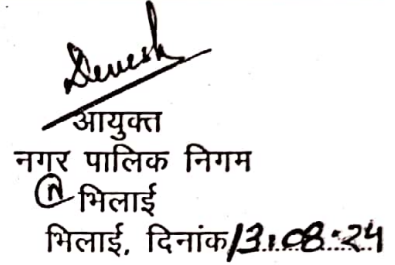 Devesh
आयुक्त
नगर पालिक निगम
भिलाई
भिलाई, दिनांक 13.08.24